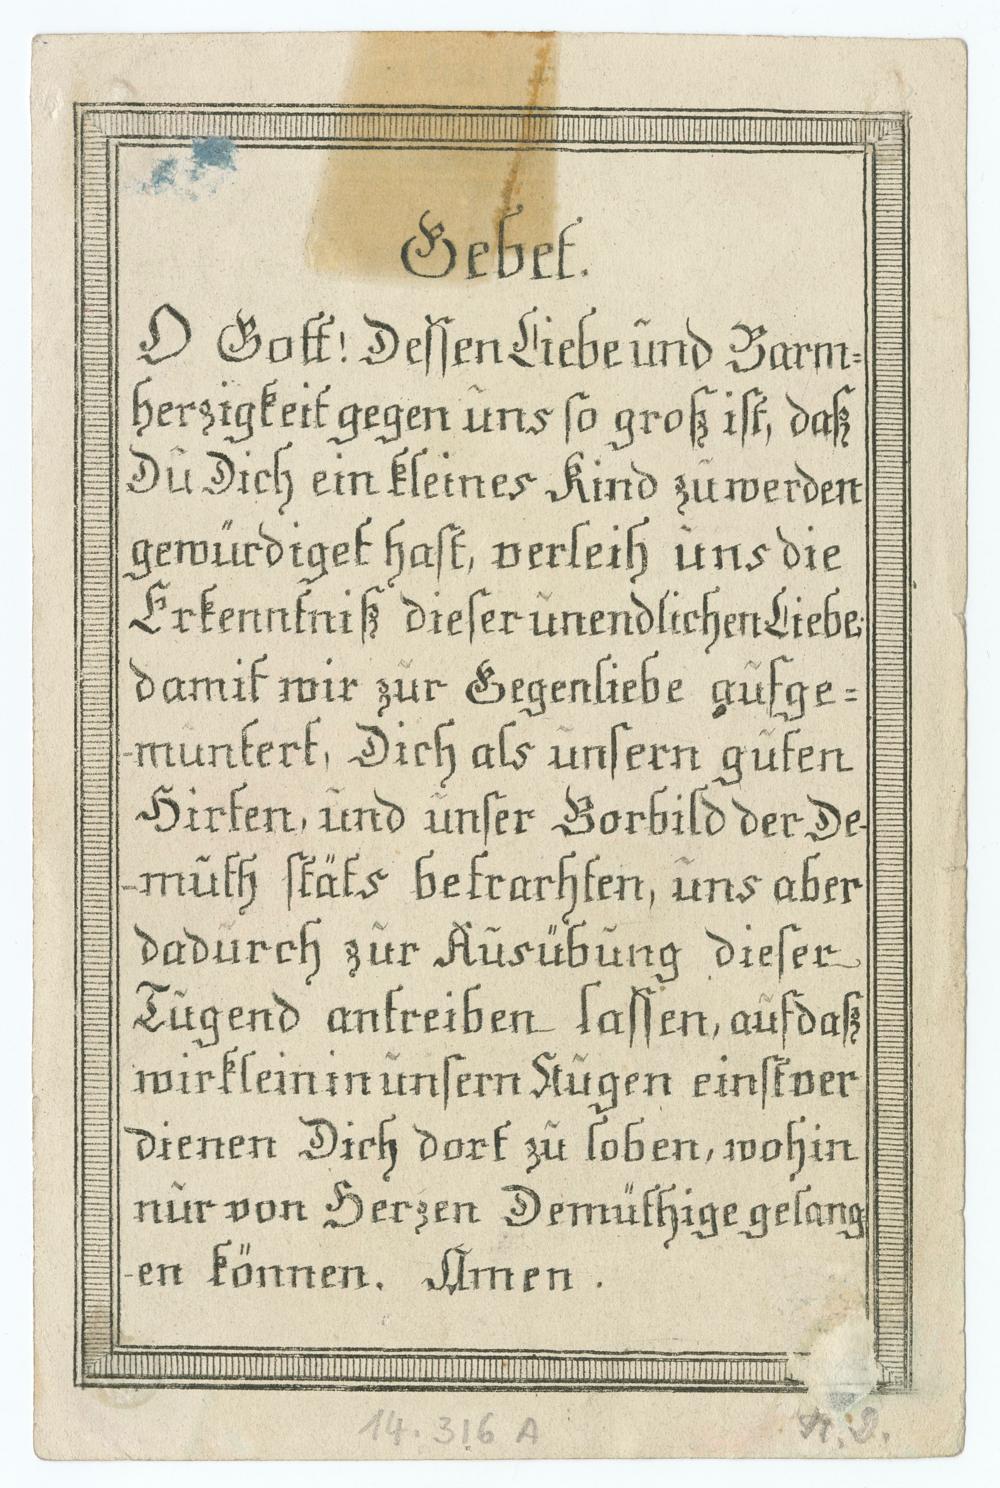 Gebet.
O Gott! Dessen Liebe und Barm=
herzigkeit gegen uns so groß ist, daß
Du Dich ein kleines Kind zu werden
gewürdiget hast, verleih uns die
Erkenntniß dieser unendlichen Liebe
damit wir zur Gegenliebe aufge=
-muntert, Dich als unsern guten
Hirten, und unser Vorbild der De-
-muth stäts betrachten, uns aber
dadurch zur Ausübung dieser
Tugend antreiben lassen, aufdaß
wir klein in unsern Augen einst ver
dienen Dich dort zu loben, wohin
nur von Herzen Demüthige gelang
-en können. Amen.
14.316 A